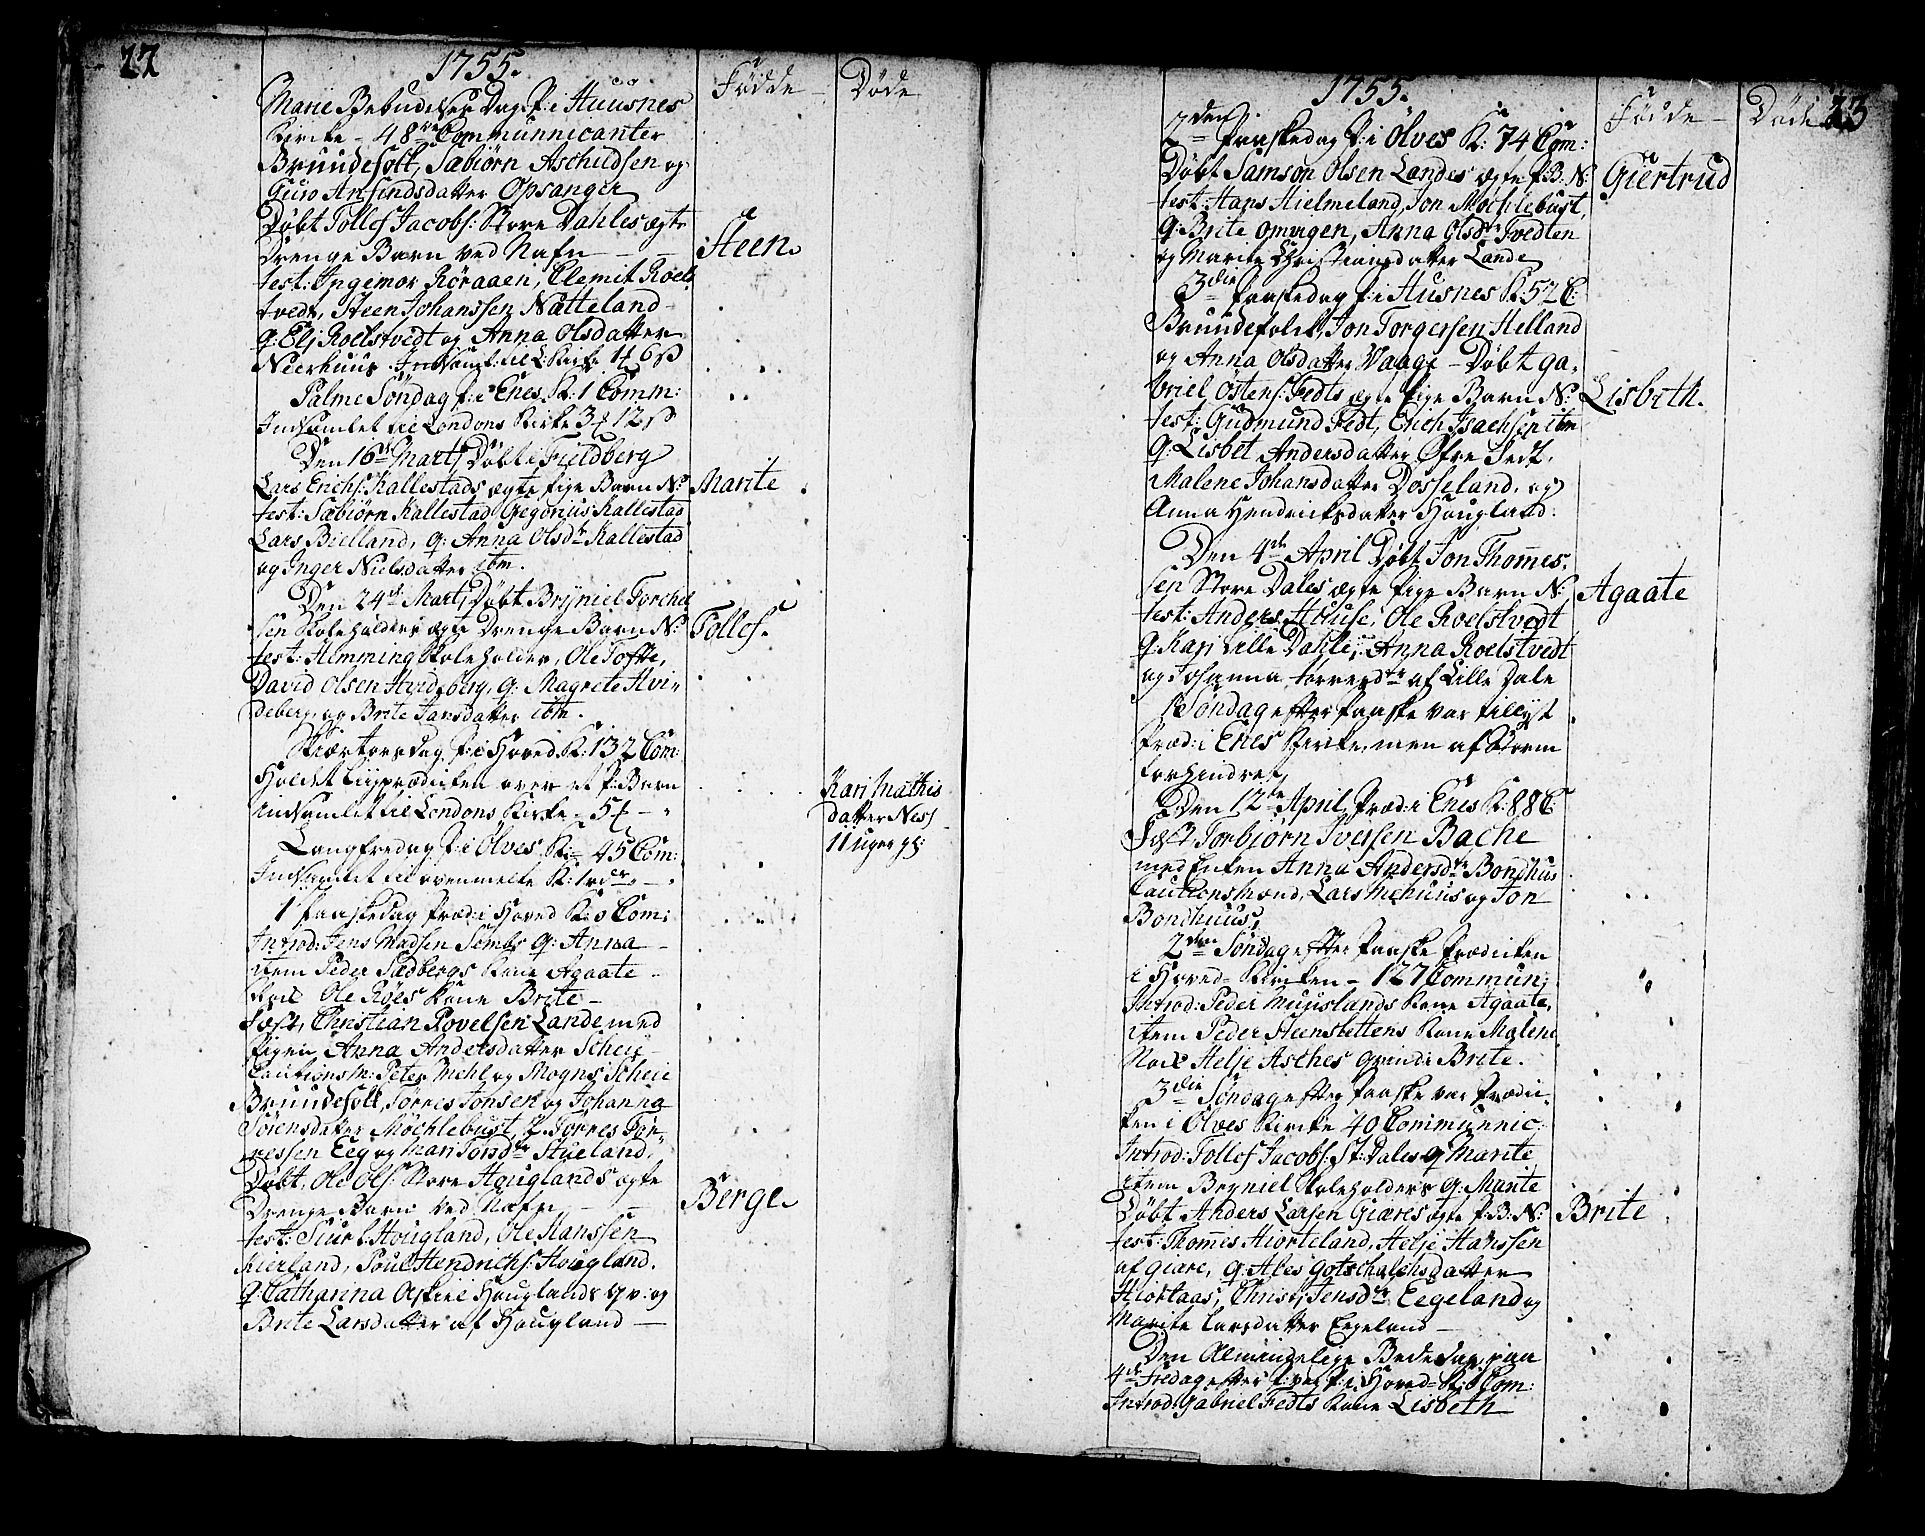 22
1755.
Fødde
Døde
Marie Bebudelses Dag P: i Huusnes
Kirke - 48 Communnicanter
Brundefolk, Sæbiørn Aschildsen og
Guro Ansindsdatter Opsanger
Døbt Tollef Jacobs: Store Dahles ægte
Drenge Barn ved Nafn
Steen
test: Ingemor Røraaen, Clemit Roels
tvedt, Steen Johanssen Natteland
q: Elj Roelstvedt og Anna Olsdatter
Neerhuus. Indsamt: til L: Kirke 1 6 s
Palme Søndag P: i Enes K: 1 Comm:
Indsamlet til Londons Kirke 3 12 s
Den 16 Martj Døbt i Fieldberg
Lars Erichs: Kallestads ægte Pige Barn N:
Marite
test: Sæbiørn Kallestad Gregorius Kallestad
Lars Bielland, q: Anna Olsdr Kallestad
og Inger Nielsdatter ibm.
Den 24 Martj Døbt Bryniel Torchel
sen Skoleholders ægte Drenge Barn N:
Tollef.
test: Hemming Skoleholder, Ole Tofte,
David Olsen Hvideberg, q: Magrete Hvi
deberg, og Brite Jansdatter ibm.
Skiærtorsdag P: i Hoved K: 132 Com:
Holdet Liigprædicken over et P: Barn
Kari Mathis
datter Ness
11 uger gl:
Indsamlet til Londons Kirke - 5
Langfredag P: i Ølves K: 45 Com:
Indsamlet til K: 1
1 Paaskedag Præd: i Hoved K: 0 Com:
Introd: Jens Madsen Sembs q: Anna
item Peder Sædbergs Kone Agaate
Ole Røes Kone Brite
Fæst, Christian Povelsen Lande med
Pigen Anna Andersdatter Scheie
Cautionsm: Peter Mehl og Mogns Scheie
Brundefolk, Tørres Jonsen og Johanna
Sørensdatter Møchlebust, 2. Tørres Tør
ressen Eeg og Mari Tørsdtr Stueland.
Døbt, Ole Ols: Store Houglands ægte
Drenge Barn ved Nafn
Berge
test: Siurt Hougland, Ole Hanssen
Kierland, Poul Hendrichs: Hougland.
q: Catharina Askie Houglands qv: og
Brite Larsdatter af Hougland
1755.
Fødde
Døde 23
2den Paaskedag P: i Ølves K: 74 Com:
Døbt Samson Olsen Landes ægte P: B: N:
Giertrud
test: Hans Hielmeland, Jon Møchlebust,
q: Brite Omvigen, Anna Olsdr Tvedten
og Marite Christiansdatter Lande
3die Paaskedag P: i Husnes K: 52 C:
Brundefolck, Jon Torgersen Helland
og Anna Olsdatter Waage - Døbt Ga
briel Østens: Fedts ægte Pige Barn N:
Lisbith.
test: Gudmund Fedt, Erich Isachsen ibm
q: Lisbet Andersdatter Øfre Fedt,
Malene Johansdatter Dosseland, og
Anna Hendricksdatter Hougland.
Den 4de April Døbt Jon Thomes
sen Store Dales ægte Pige Barn N:
Agaate
test: Anders Huuse, Ole Roelstvedt
q: Kari Lille Dahle, Anna Roelstvedt
og Johanna Torresdtr af Lille Dale
1 Søndag efter Paaske var tillyst
Præd: i Enes Kirke, men af Storm
forhindret,
Den 12te April, Præd: i Enes K: 88 C:
Fæst, Torbiørn Iversen Bache
med Enken Anna Andersdtr Bondhus
Cautionsmænd, Lars Mehuus og Jon
Bondhuus,
2den Søndag efter Paaske Prædicken
i Hoved-Kirken - 127 Commun:
Introd: Peder Muuslands Kone Agaate,
item Peder Steenstettens Kone Malene
Nock Helje Asches qvinde Brite.
3die Søndag efter Paaske var Prædic
ken i Ølves Kirke 40 Communnic:
Introd: Tollef Jacobs: St: Dales q: Marite
item Bryniel Skoleholders q: Marite
Døbt Anders Larsen Giæres ægte P: B: N:
Brite
test: Thomes Hiorteland, Helje Hanssen
af Giære, q: Ales Gotschalchsdatter
Hiortaas, Christj Jensdtr Eegeland og
Marite Larsdatter Eegeland
Den Almindelige Bededag paa
4de Fredag efter P: i Hoved-K: 0 Com:
Introd: Gabriel Fedts Kone Lisbeth